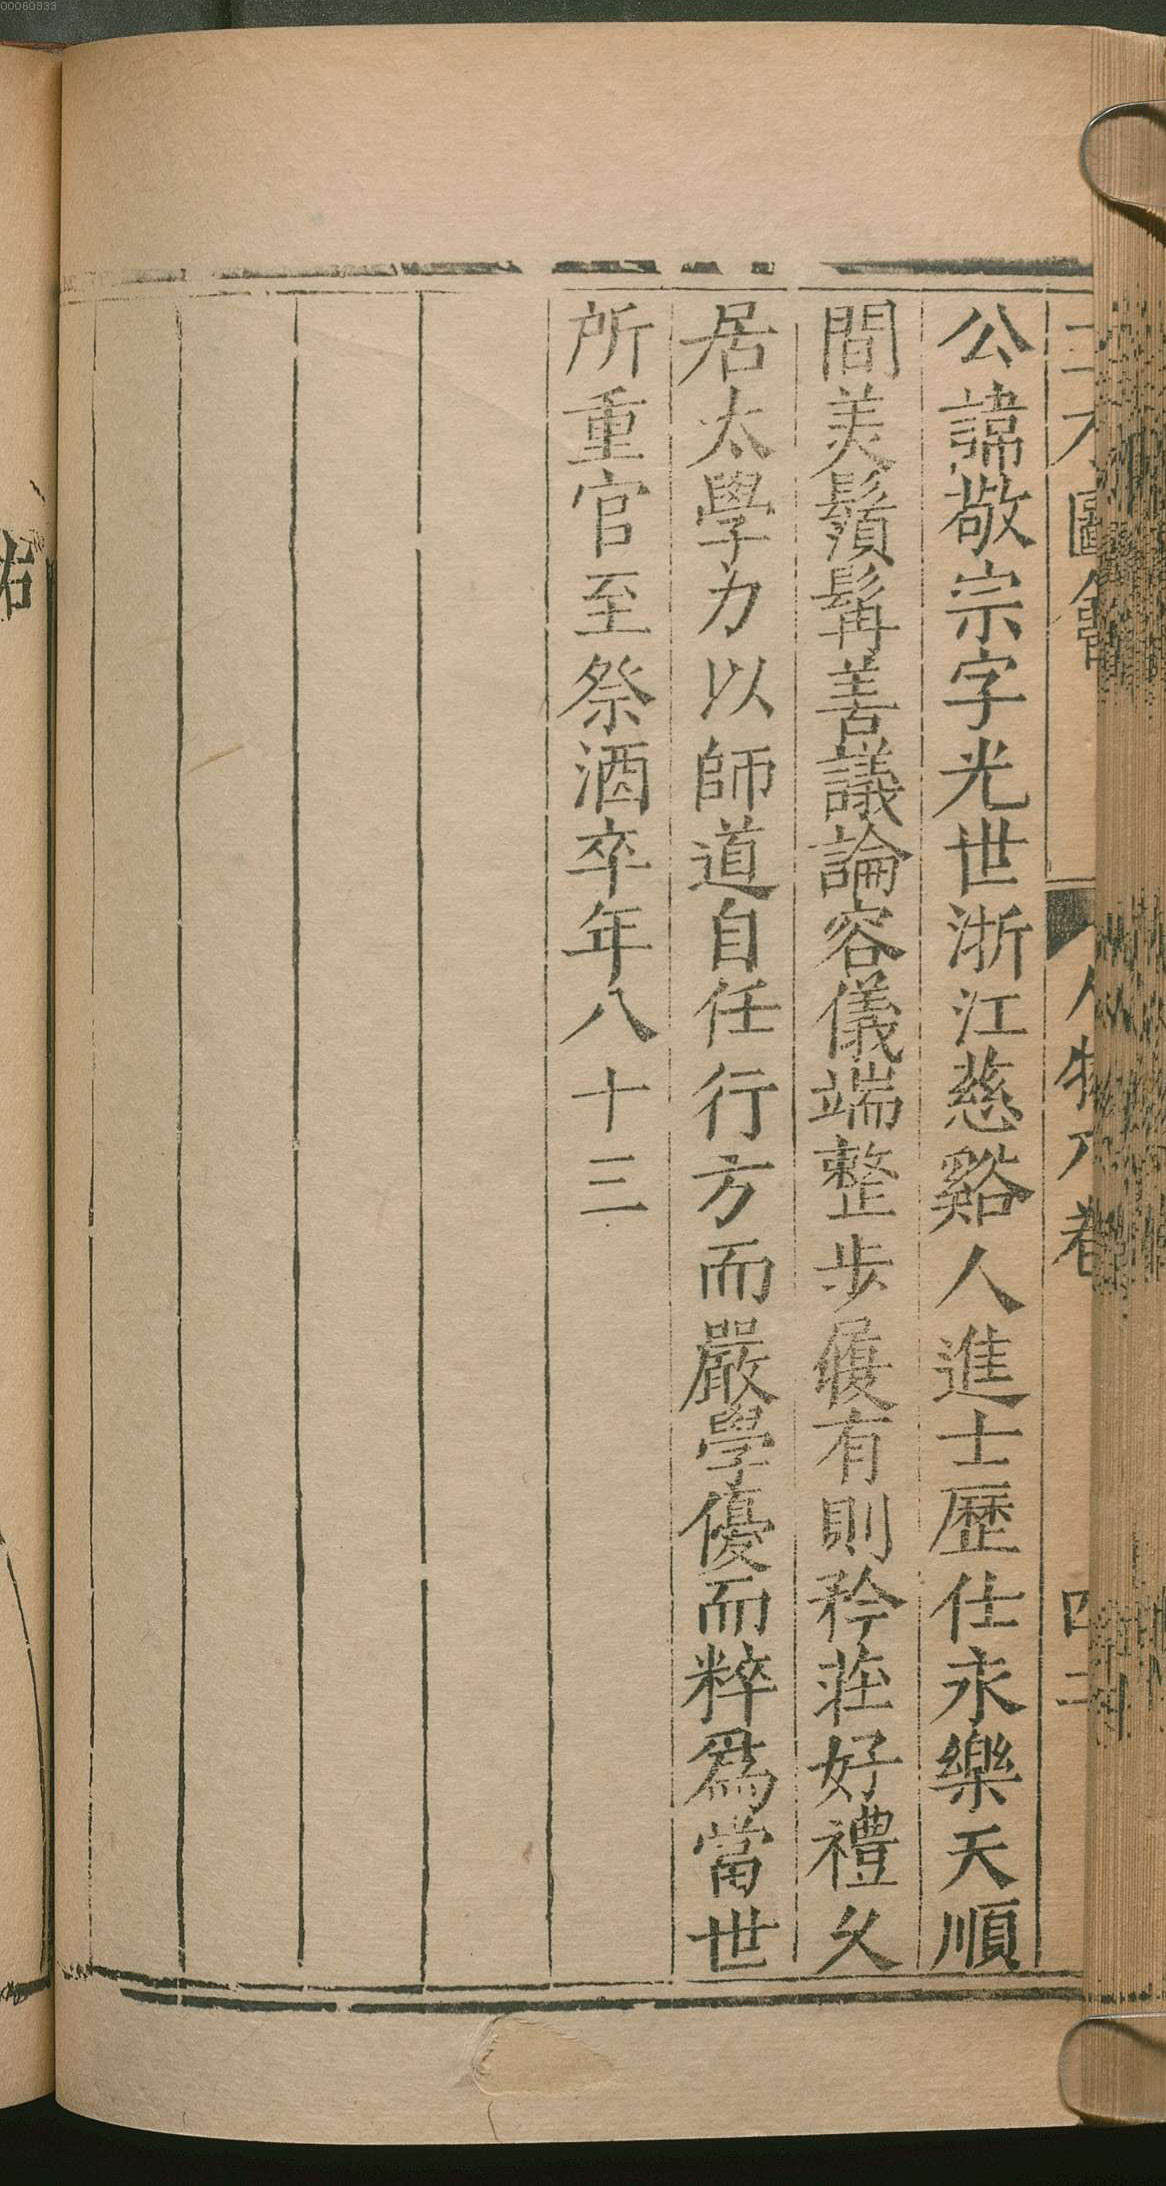 00060833
三才圖會 人物八卷 四二
公諱敬宗字光世浙江慈谿人進士歷仕永樂天順
間美鬚髯善議論容儀端整步履有則矜莊好禮久
居太學力以師道自任行方而嚴學優而粹爲當世
所重官至祭酒卒年八十三